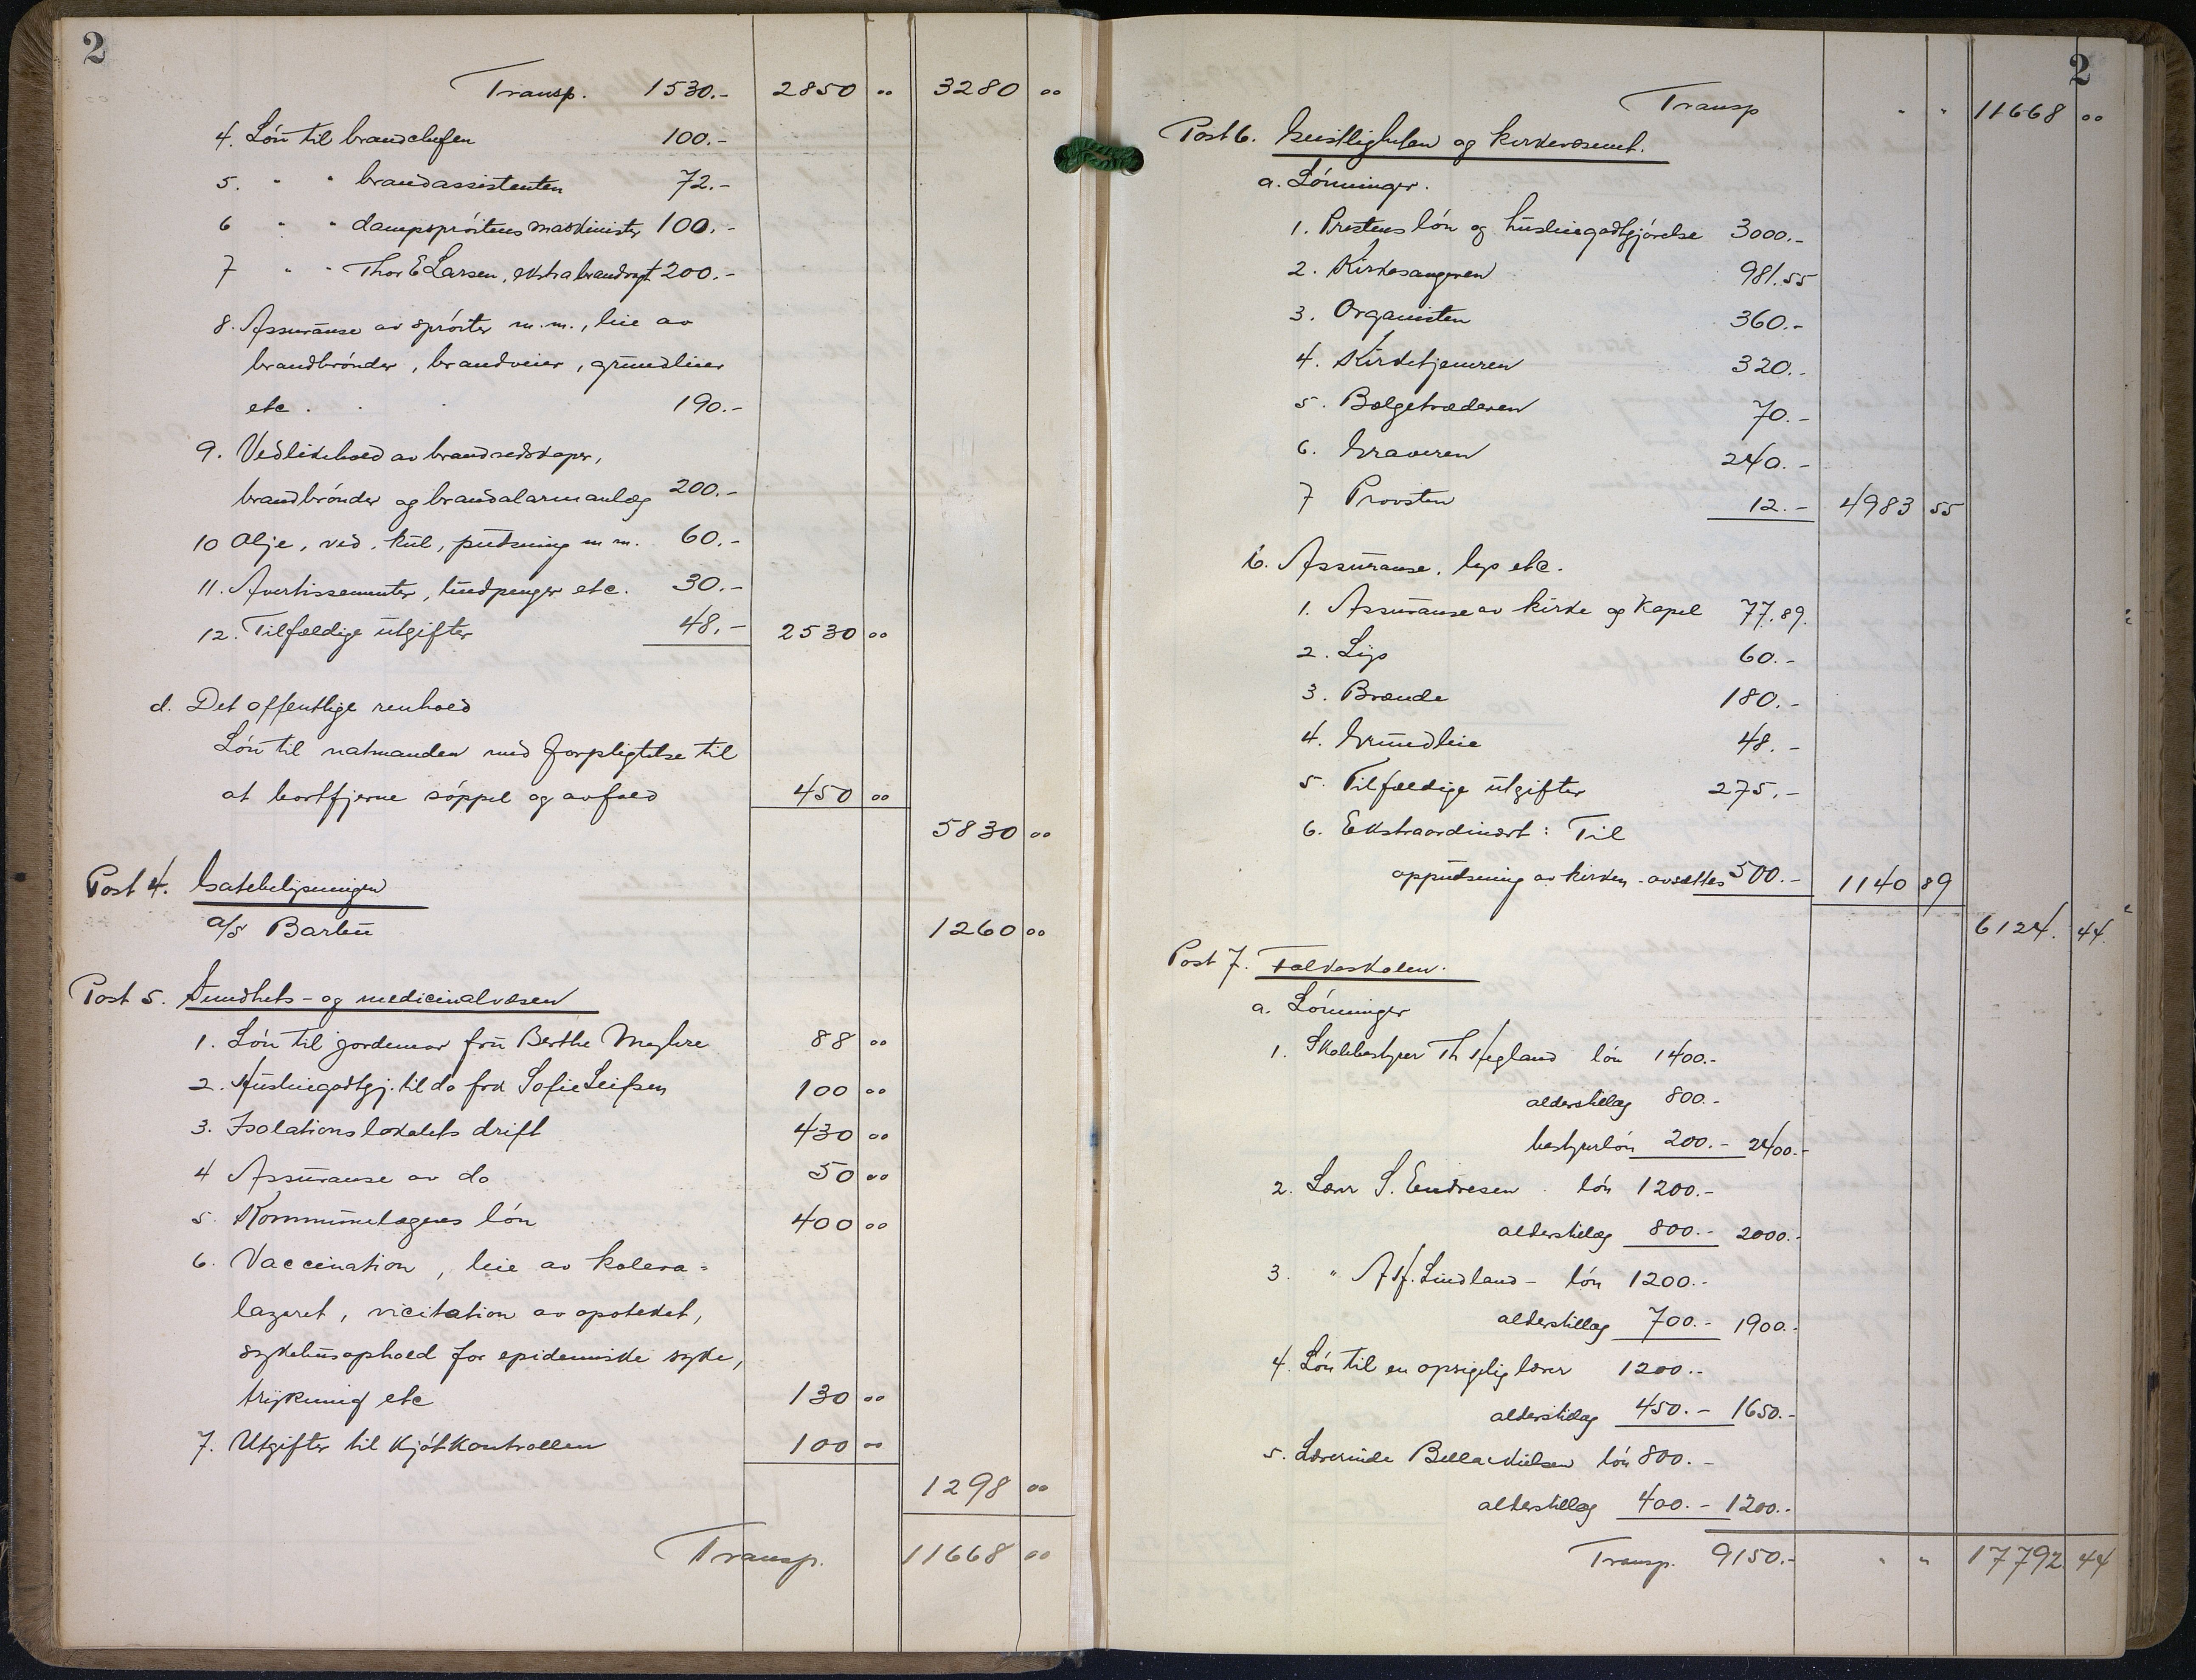 2
Transp. 1530.- 2850 00 3280 00
4. Lön til brandchefen 100.-
5. " " brandassistenten 72.-
6 " " dampspröitens maskinister 100.-
7 " " Thor E Larsen, ekstra brandvagt 200.-
8. Assuranse av spröiter m.m., leie av
brandbrönder, brandveier, grundleier
etc. . . 190.-
9. Vedlikehold av brandredskaper,
brandbrönder og brandalarmanlæg 200.-
10 Olje, ved, kul, pudsning m m. 60.-
11. Avertissementer, budpenger etc. 30.-
12. Tilfældige utgifter 48.- 2530 00
d. Det offentlige renhold
Lön til natmanden med forpligtelse til
at bortfjerne söppel og avfald 450 00
5830 00
Post 4. Gatebelysningen
A/S Barbu 1260 00
Post 5. Sundhets- og medicinalvæsen
1. Lön til jordemor fru Berthe Meyhre 88 00
2. Husleiegodtgj. til do frk Sofie Leifsen 100 00
3. Isolationslokalets drift 430 00
4 Assuranse av do 50 00
5. Kommunelægens lön 400 00
6. Vaccination, leie av kolera-
lazaret, vicitation av apoteket,
sykehusophold for epidemiske syke,
trykning etc 130 00
7. Utgifter til kjötkontrollen 100 00
1298 00
Transp. 11668 00
2
Transp " " 11668 00
Post 6. Geistligheten og kirkevæsenet.
a. Lönninger.
1. Prestens lön og husleiegodtgjörelse 3000.-
2. Kirkesangeren 981.55
3. Organisten 360.-
4. Kirketjeneren 320.-
5. Bælgetræderen 70.-
6. Graveren 240.-
7 Provsten 12.- 4983 55
b. Assuranse, lys etc.
1. Assuranse av kirke og kapel 77.89.
2. Lys 60.-
3. Brænde 180.-
4. Grundleie 48.-
5. Tilfældige utgifter 275.-
6. Ekstraordinært: Til
oppudsning av kirken avsættes 500.- 1140 89
6124. 44.
Post 7. Folkeskolen.
a. Lönninger
1. Skolebestyrer Th Hegland lön 1400.-
alderstillæg 800.-
bestyrerlön 200.- 2400.-
2. Lærer S. Endresen . lön 1200.-
alderstillæg 800.- 2000.-
3. " A H. Lindland - lön 1200.-
alderstillæg 700.- 1900.-
4. Lön til en opsigelig lærer 1200.-
alderstillæg 450.- 1650.-
5. Lærerinde Bella Nielsen lön 800.-
alderstillæg 400.- 1200.-
Transp. 9150.- " " 17792. 44